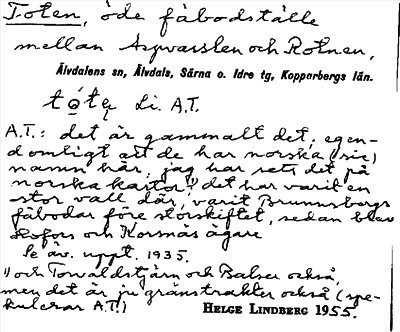 Toten, öde fäbodställe
mellan Åsvasslen och Rotnen,
Älvdalens sn, Älvdals, Särna o. Idre tg, Kopparbergs län.
Li. A.T.
A.T.: det är gammalt det, egen-
domligt att de har norska (sic)
namn här, jag har sett det på
norska kartor 1) det har varit en
stor vall där, varit Brunnsbergs
fäbodar före storskiftet, sedan blev
och Korsnäs ägare
Se äv. uppt. 1935.
1) och Torvaldstjärn och Balser också,
men det är ju gränstrakter också (spe-
kulerar A.T.) HELGE LINDBERG 1955.